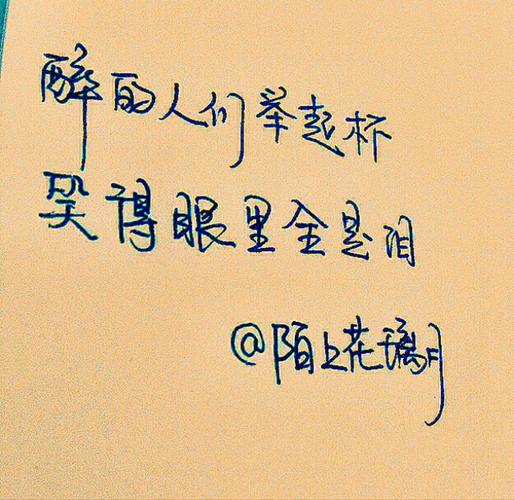 醉的人们举起杯
笑得眼里全是泪
@陌上花璃月